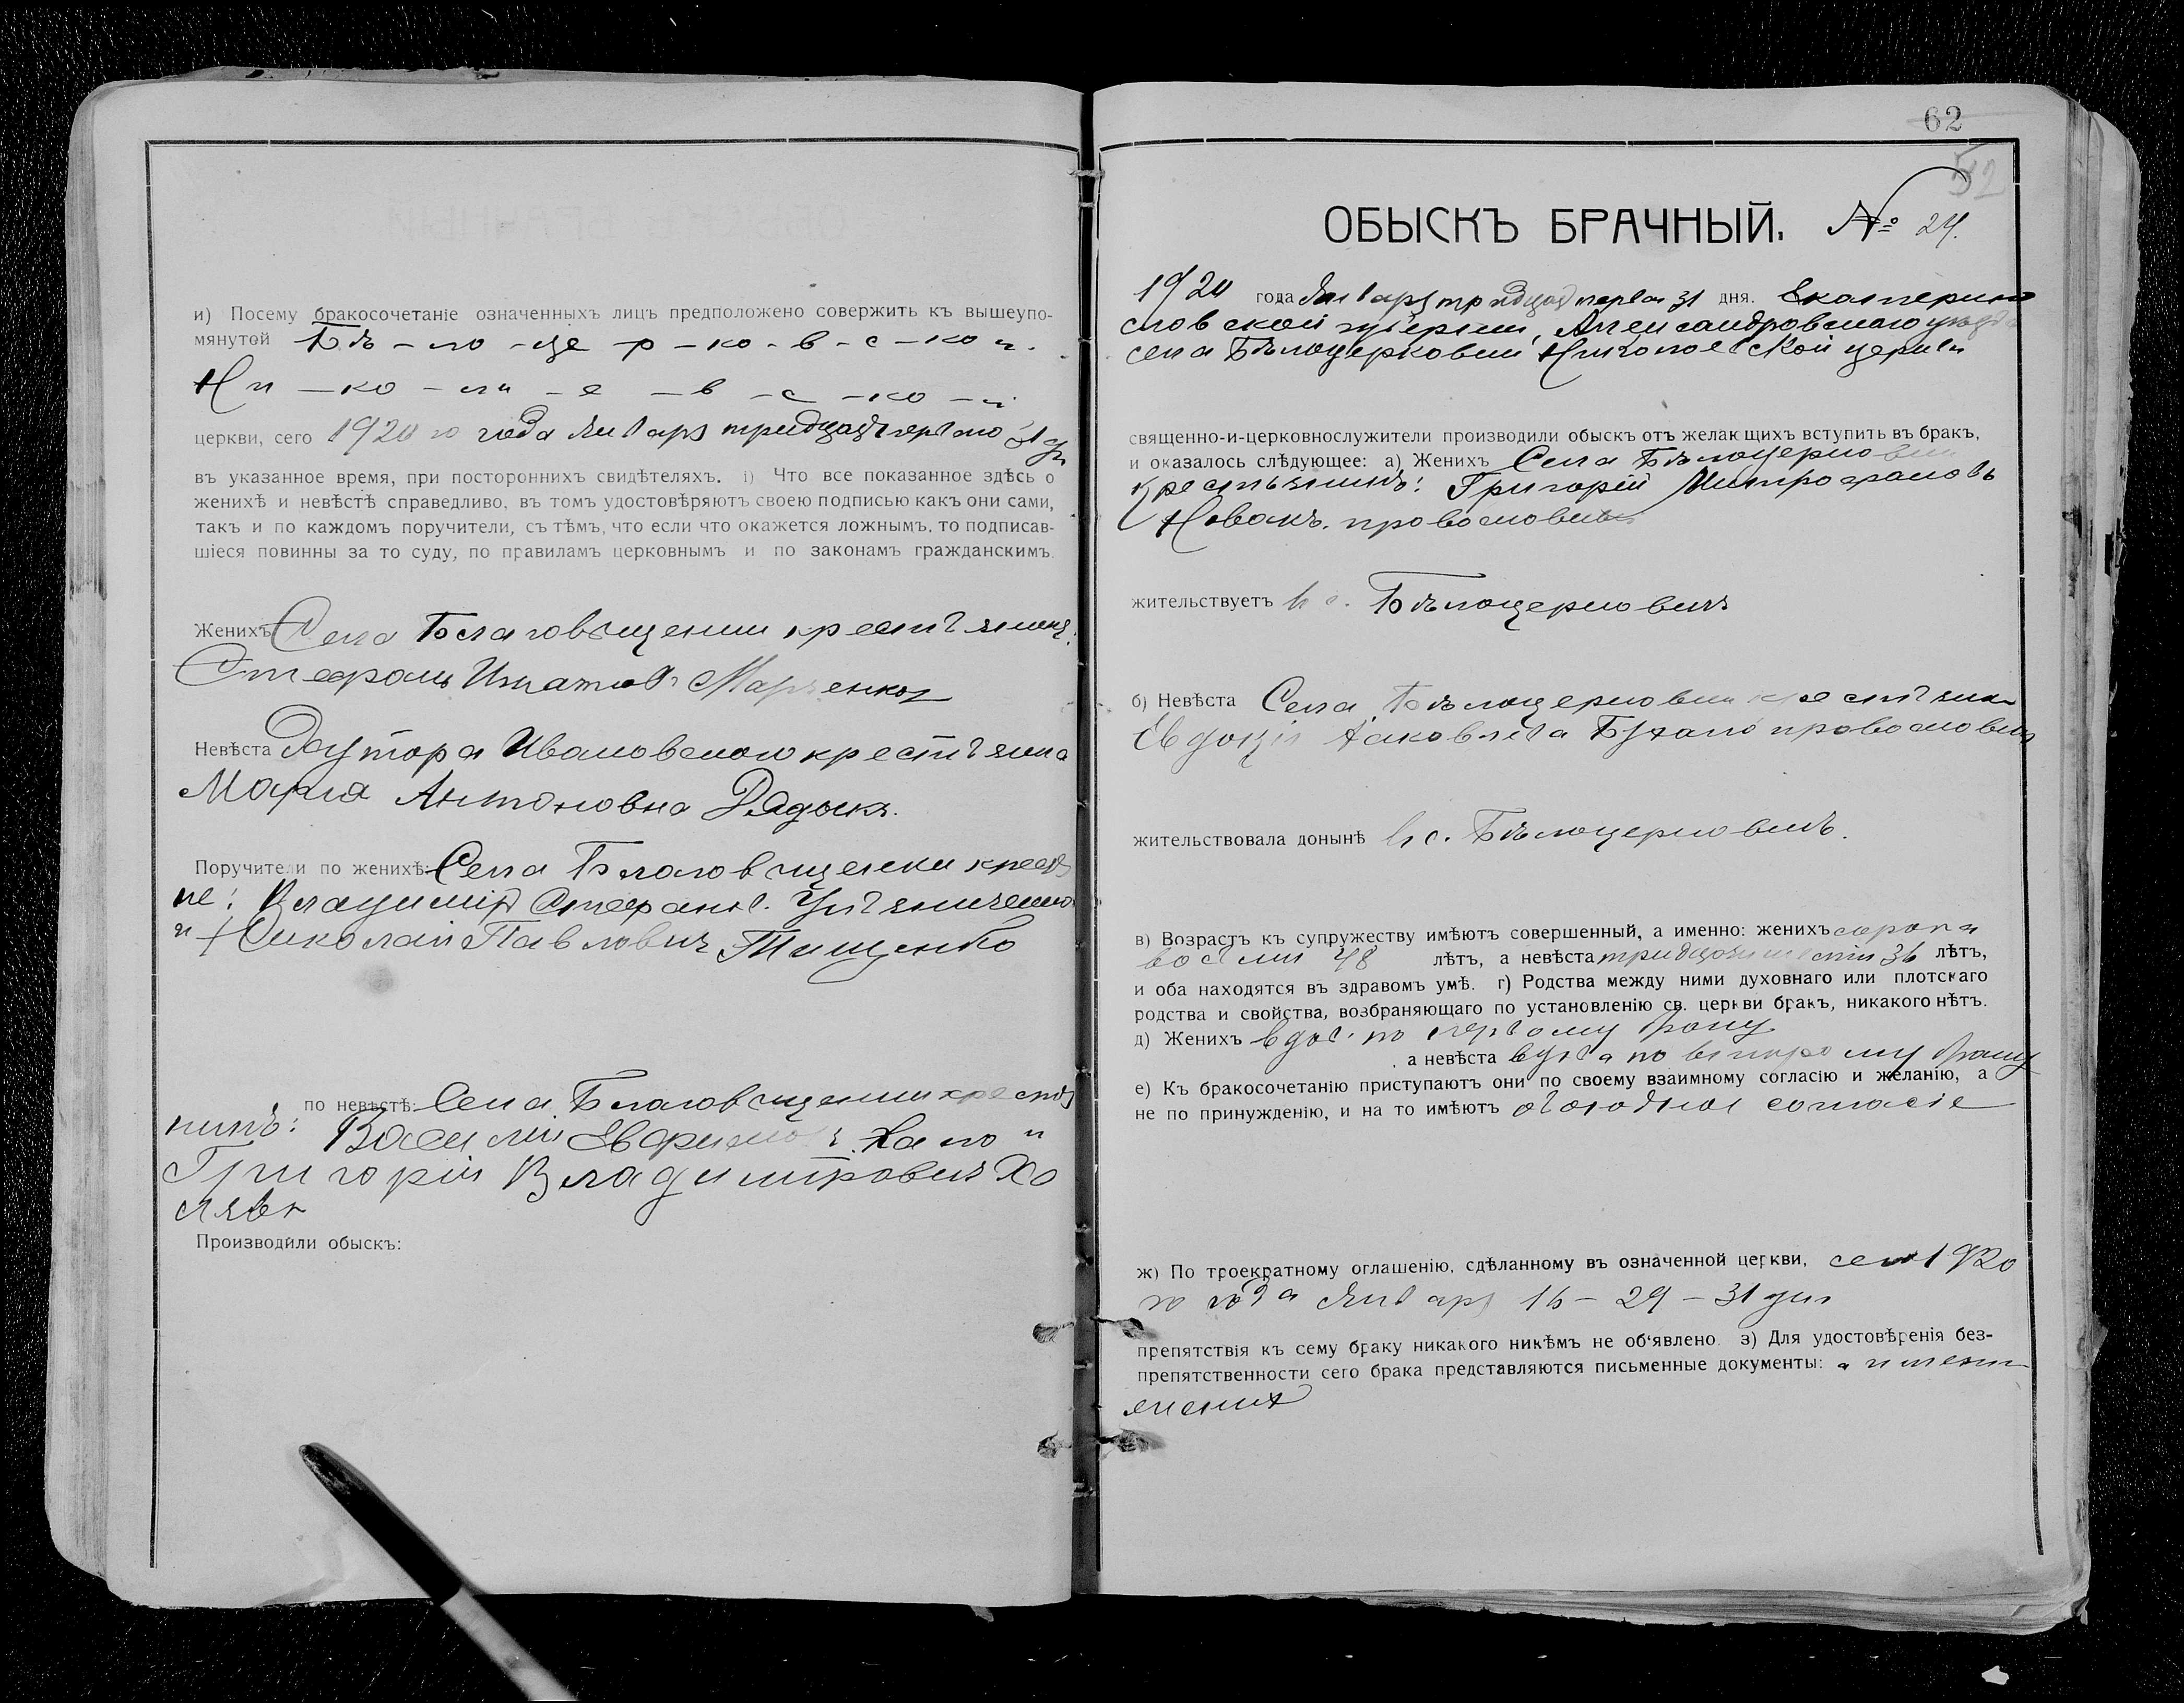 и) Посему бракосочетаніе означенныхъ лицъ предположено совержить къ вышеупо-
мянутой Бѣ - ло - це - р - ко - в - с - ко й.
Ни - ко - ла - е - в - с - ко - й
церкви, сего 1920 го года Января тридцать перваго 31 дн
въ указанное время, при постороннихъ свидѣтеляхъ. і) Что все показанное здѣсь о
женихѣ и невѣстѣ справедливо, въ томъ удостовѣряютъ своею подписью какъ они сами,
такъ и по каждомъ поручители, съ тѣмъ, что если что окажется ложнымъ, то подписав-
шіеся повинны за то суду, по правиламъ церковнымъ и по законамъ гражданскимъ.
Женихъ Села Благовѣщенки крестьянинъ:
Стефанъ Игнатовъ Марченко
Невѣста Хутора Ивановскаго крестьянка
Мария Антоновна Рядока.
Поручители по женихѣ: Села Благовѣщенки крестья
не: Владиміръ Стефанов.
и Николай Павловичъ Тищенко
по невѣстѣ: Села Благовѣщенки крестья
нинъ: Василій и
Григорій Владиміровичъ Хо
лявк
Производили обыскъ:
62
52
ОБЫСКЪ БРАЧНЫЙ. № 24.
1920 года Января тридцать перваго 31 дня. Екатерино
славской губерніи, Александровскаго уѣзда
села Бѣлоцерковки Николаевской церкви
священно-и-церковнослужители производили обыскъ отъ желающихъ вступить въ бракъ,
и оказалось слѣдующее: а) Женихъ Села Бѣлоцерковки
крестьянинъ: Григорій Митрофановъ
Новакъ. православный
жительствуетъ в с. Бѣлоцерковкѣ
б) Невѣста Села Бѣлоцерковки крестьянка
Евдокія Яковлева православная
жительствовала донынѣ в с. Бѣлоцерковкѣ.
в) Возрастъ къ супружеству имѣютъ совершенный, а именно: женихъ сорока
восьми 48 лѣтъ, а невѣста тридцати шести 36 лѣтъ,
и оба находятся въ здравомъ умѣ. г) Родства между ними духовнаго или плотскаго
родства и свойства, возбраняющаго по установленію св. церкви бракъ, никакого нѣтъ.
д) Женихъ вдов. по первому браку
, а невѣста вдова по второму браку
е) Къ бракосочетанію приступаютъ они по своему взаимному согласію и желанію, а
не по принужденію, и на то имѣютъ обоюдное согласіе
ж) По троекратному оглашенію, сдѣланному въ означенной церкви, сего 1920
го года Января 16 - 29 - 31 дня
препятствія къ сему браку никакого никѣмъ не об'явлено. з) Для удостовѣренія без-
препятственности сего брака представляются письменные документы: